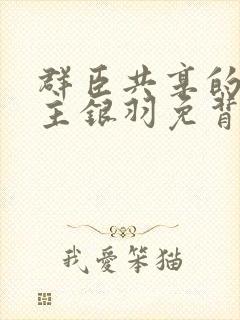 群臣共享的
主银羽免背
我爱笨猫